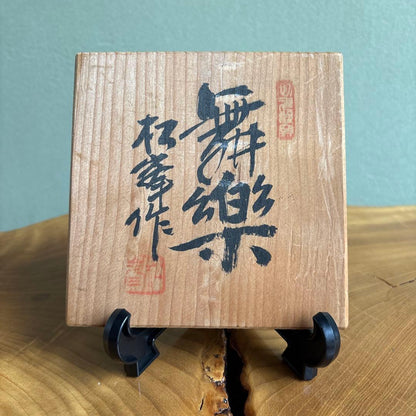 舞樂
松峯作